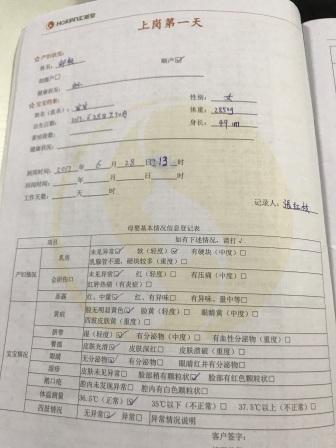 上岗第一天
☆产妇状况:
姓名: 顺产☑
剖腹产□
健康状况:
☆宝宝档案:
姓名(乳名): 宝宝 性别: 女
出生日期: 体重: 2850g
健康状况: 身长: 49cm
到岗时间: 2017 年 6 月 28 日 13 时
离岗时间: 年 月 日 时
工作天数: 天 时
记录人: 张红枝
母婴基本情况信息登记表
项目 如有下述情况,请打√
产妇情况
乳房 未见异常☑ 软(轻度)☑ 有硬块(中度)□
乳腺管不通,硬块较多(重度)□
会阴伤口 未见异常□ 红(轻度)□ 有压痛(中度)□
红肿热痛(有炎症)□
恶露 红、中量☑ 红、有异味□ 有异味、量中等□
宝宝情况
黄疸 脸无明显黄色☑ 脸黄(轻度)□ 眼睛黄(中度)□
四肢皮肤黄(重度)□
脐带 湿(轻度)☑ 有分泌物(中度)□ 有血性分泌物(重度)□
臀部 皮肤光滑☑ 皮肤深红□ 皮肤溃破(重度)□
眼睛 无分泌物☑ 有分泌物□ 眼睛红并有分泌物□
湿疹 皮肤未见异常□ 脸部稍有颗粒状☑ 脸部有红色颗粒状□
鹅口疮 腔内未发现异常□ 腔内有白色颗粒状□
体温测量 36.5℃(正常)☑ 35℃以下(不正常)□ 37.5℃以上(不正常)□
四肢情况 无异常☑ 异常□ 异常情况说明
客户签字: